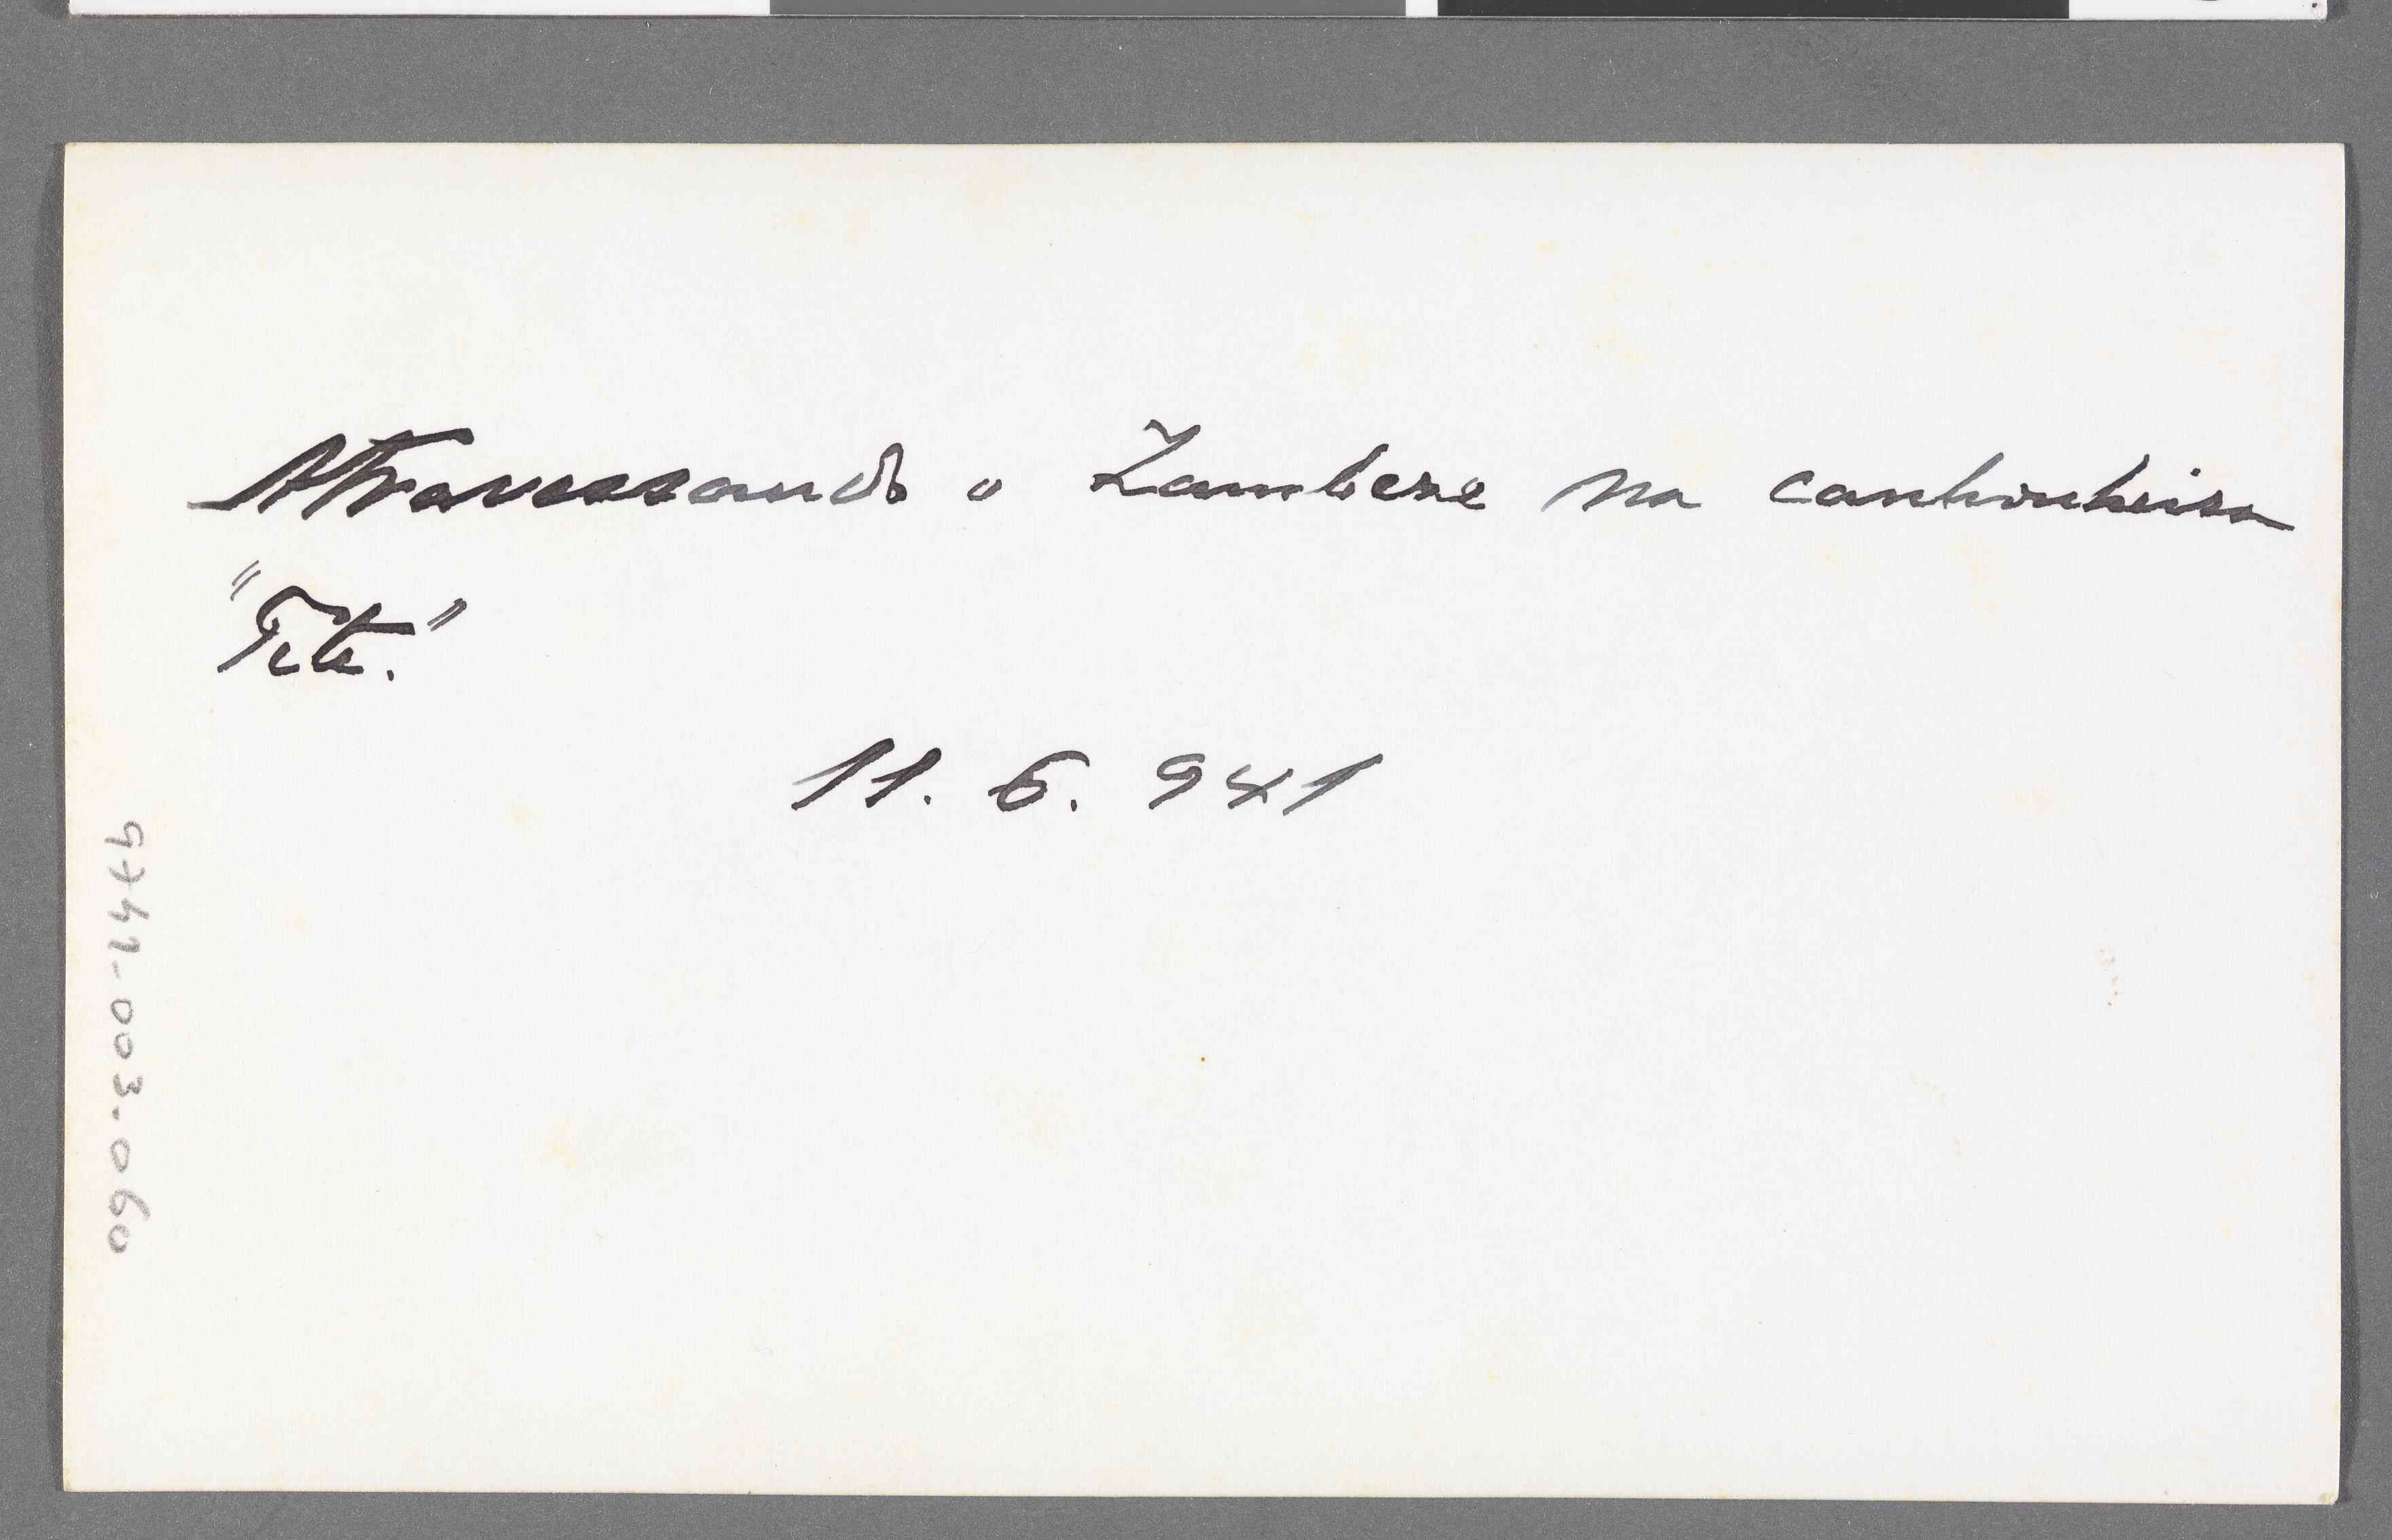 Atravessando o Zambeze na canhonheira
"Tete."
11. 6. 941
9741-003.060